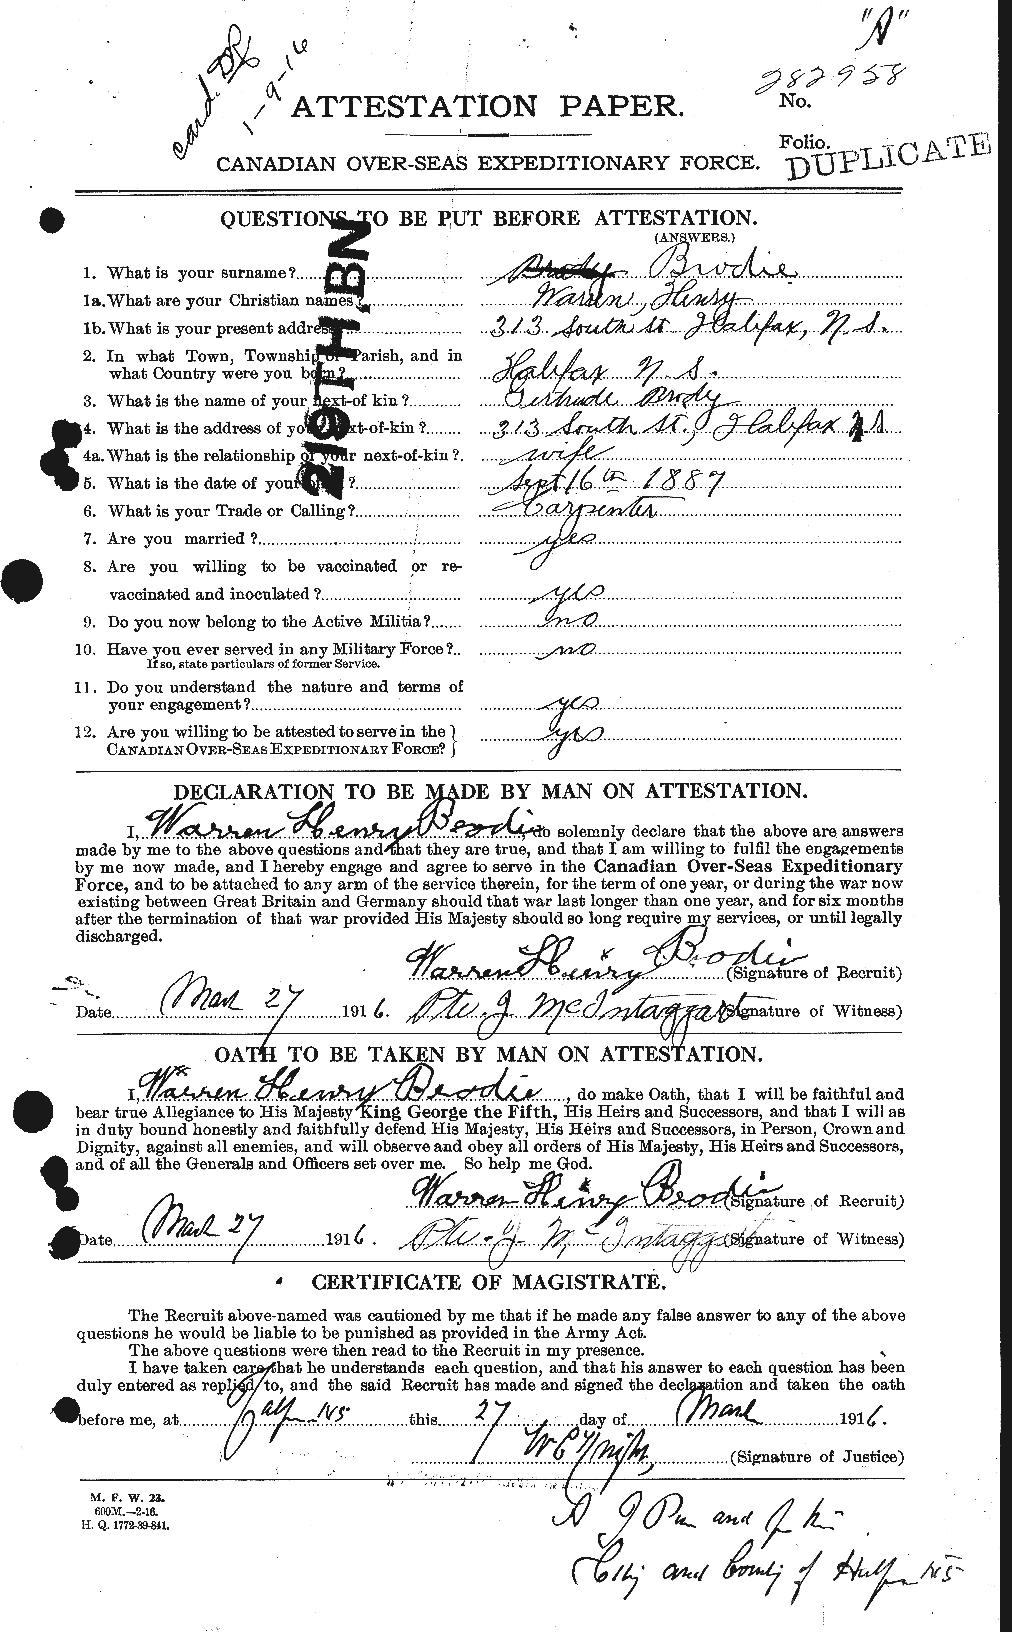 "A"
card. 
1-9-16
282958
No.
ATTESTATION PAPER.
Folio.
DUPLICATE
CANADIAN OVER-SEAS EXPEDITIONARY FORCE.
219TH BN
QUESTIONS TO BE PUT BEFORE ATTESTATION.
(ANSWERS.)
1. What is your surname? Brody Brodie
1a. What are your Christian names? Warren, Henry
1b. What is your present address? 313 South St Halifax, N.S.
2. In what Town, Township or Parish, and in
what Country were you born? Halifax N.S.
3. What is the name of your next-of kin? Gertrude Brody
4. What is the address of your next-of-kin? 313 South St., Halifax N S
4a. What is the relationship of your next-of-kin? wife
5. What is the date of your birth? Sept 16th 1887
6. What is your Trade or Calling? Carpenter
7. Are you married? yes
8. Are you willing to be vaccinated or re-
vaccinated and inoculated? yes
9. Do you now belong to the Active Militia? no
10. Have you ever served in any Military Force? no
If so, state particulars of former Service.
11. Do you understand the nature and terms of
your engagement? yes
12. Are you willing to be attested to serve in the
CANADIAN OVER-SEAS EXPEDITIONARY FORCE? yes
DECLARATION TO BE MADE BY MAN ON ATTESTATION.
I, Warren Henry Brodie, do solemnly declare that the above are answers
made by me to the above questions and that they are true, and that I am willing to fulfil the engagements
by me now made, and I hereby engage and agree to serve in the Canadian Over-Seas Expeditionary
Force, and to be attached to any arm of the service therein, for the term of one year, or during the war now
existing between Great Britain and Germany should that war last longer than one year, and for six months
after the termination of that war provided His Majesty should so long require my services, or until legally
discharged.
Warren Henry Brodie (Signature of Recruit)
Date Mar 27 1916. Pte. J McIntaggart (Signature of Witness)
OATH TO BE TAKEN BY MAN ON ATTESTATION.
I, Warren Henry Brodie, do make Oath, that I will be faithful and
bear true Allegiance to His Majesty King George the Fifth, His Heirs and Successors, and that I will as
in duty bound honestly and faithfully defend His Majesty, His Heirs and Successors, in Person, Crown and
Dignity, against all enemies, and will observe and obey all orders of His Majesty, His Heirs and Successors,
and of all the Generals and Officers set over me. So help me God.
Warren Henry Brodie (Signature of Recruit)
Date March 27 1916. Pte. J McIntaggart (Signature of Witness)
CERTIFICATE OF MAGISTRATE.
The Recruit above-named was cautioned by me that if he made any false answer to any of the above
questions he would be liable to be punished as provided in the Army Act.
The above questions were then read to the Recruit in my presence.
I have taken care that he understands each question, and that his answer to each question has been
duly entered as replied to, and the said Recruit has made and signed the declaration and taken the oath
before me, at Halfx NS this 27 day of March 1916.
(Signature of Justice)
M. F. W. 23.
600M.—2-16.
H. Q. 1772-39-841.
A J P in and for the
City and County of Halifax NS